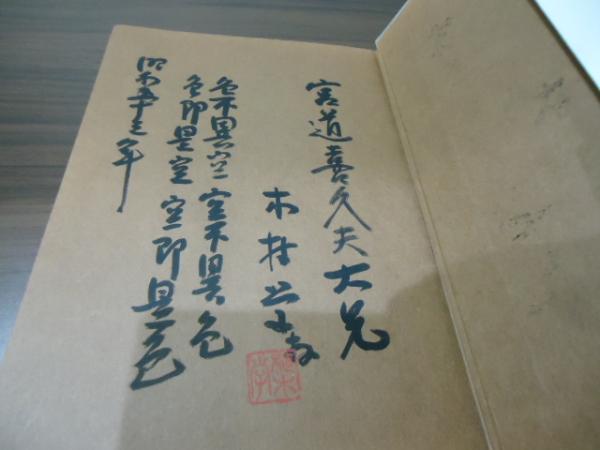 宮道喜久夫大兄
木村
色不異空 空不異色
色即是空 空即是色
昭和五十三年